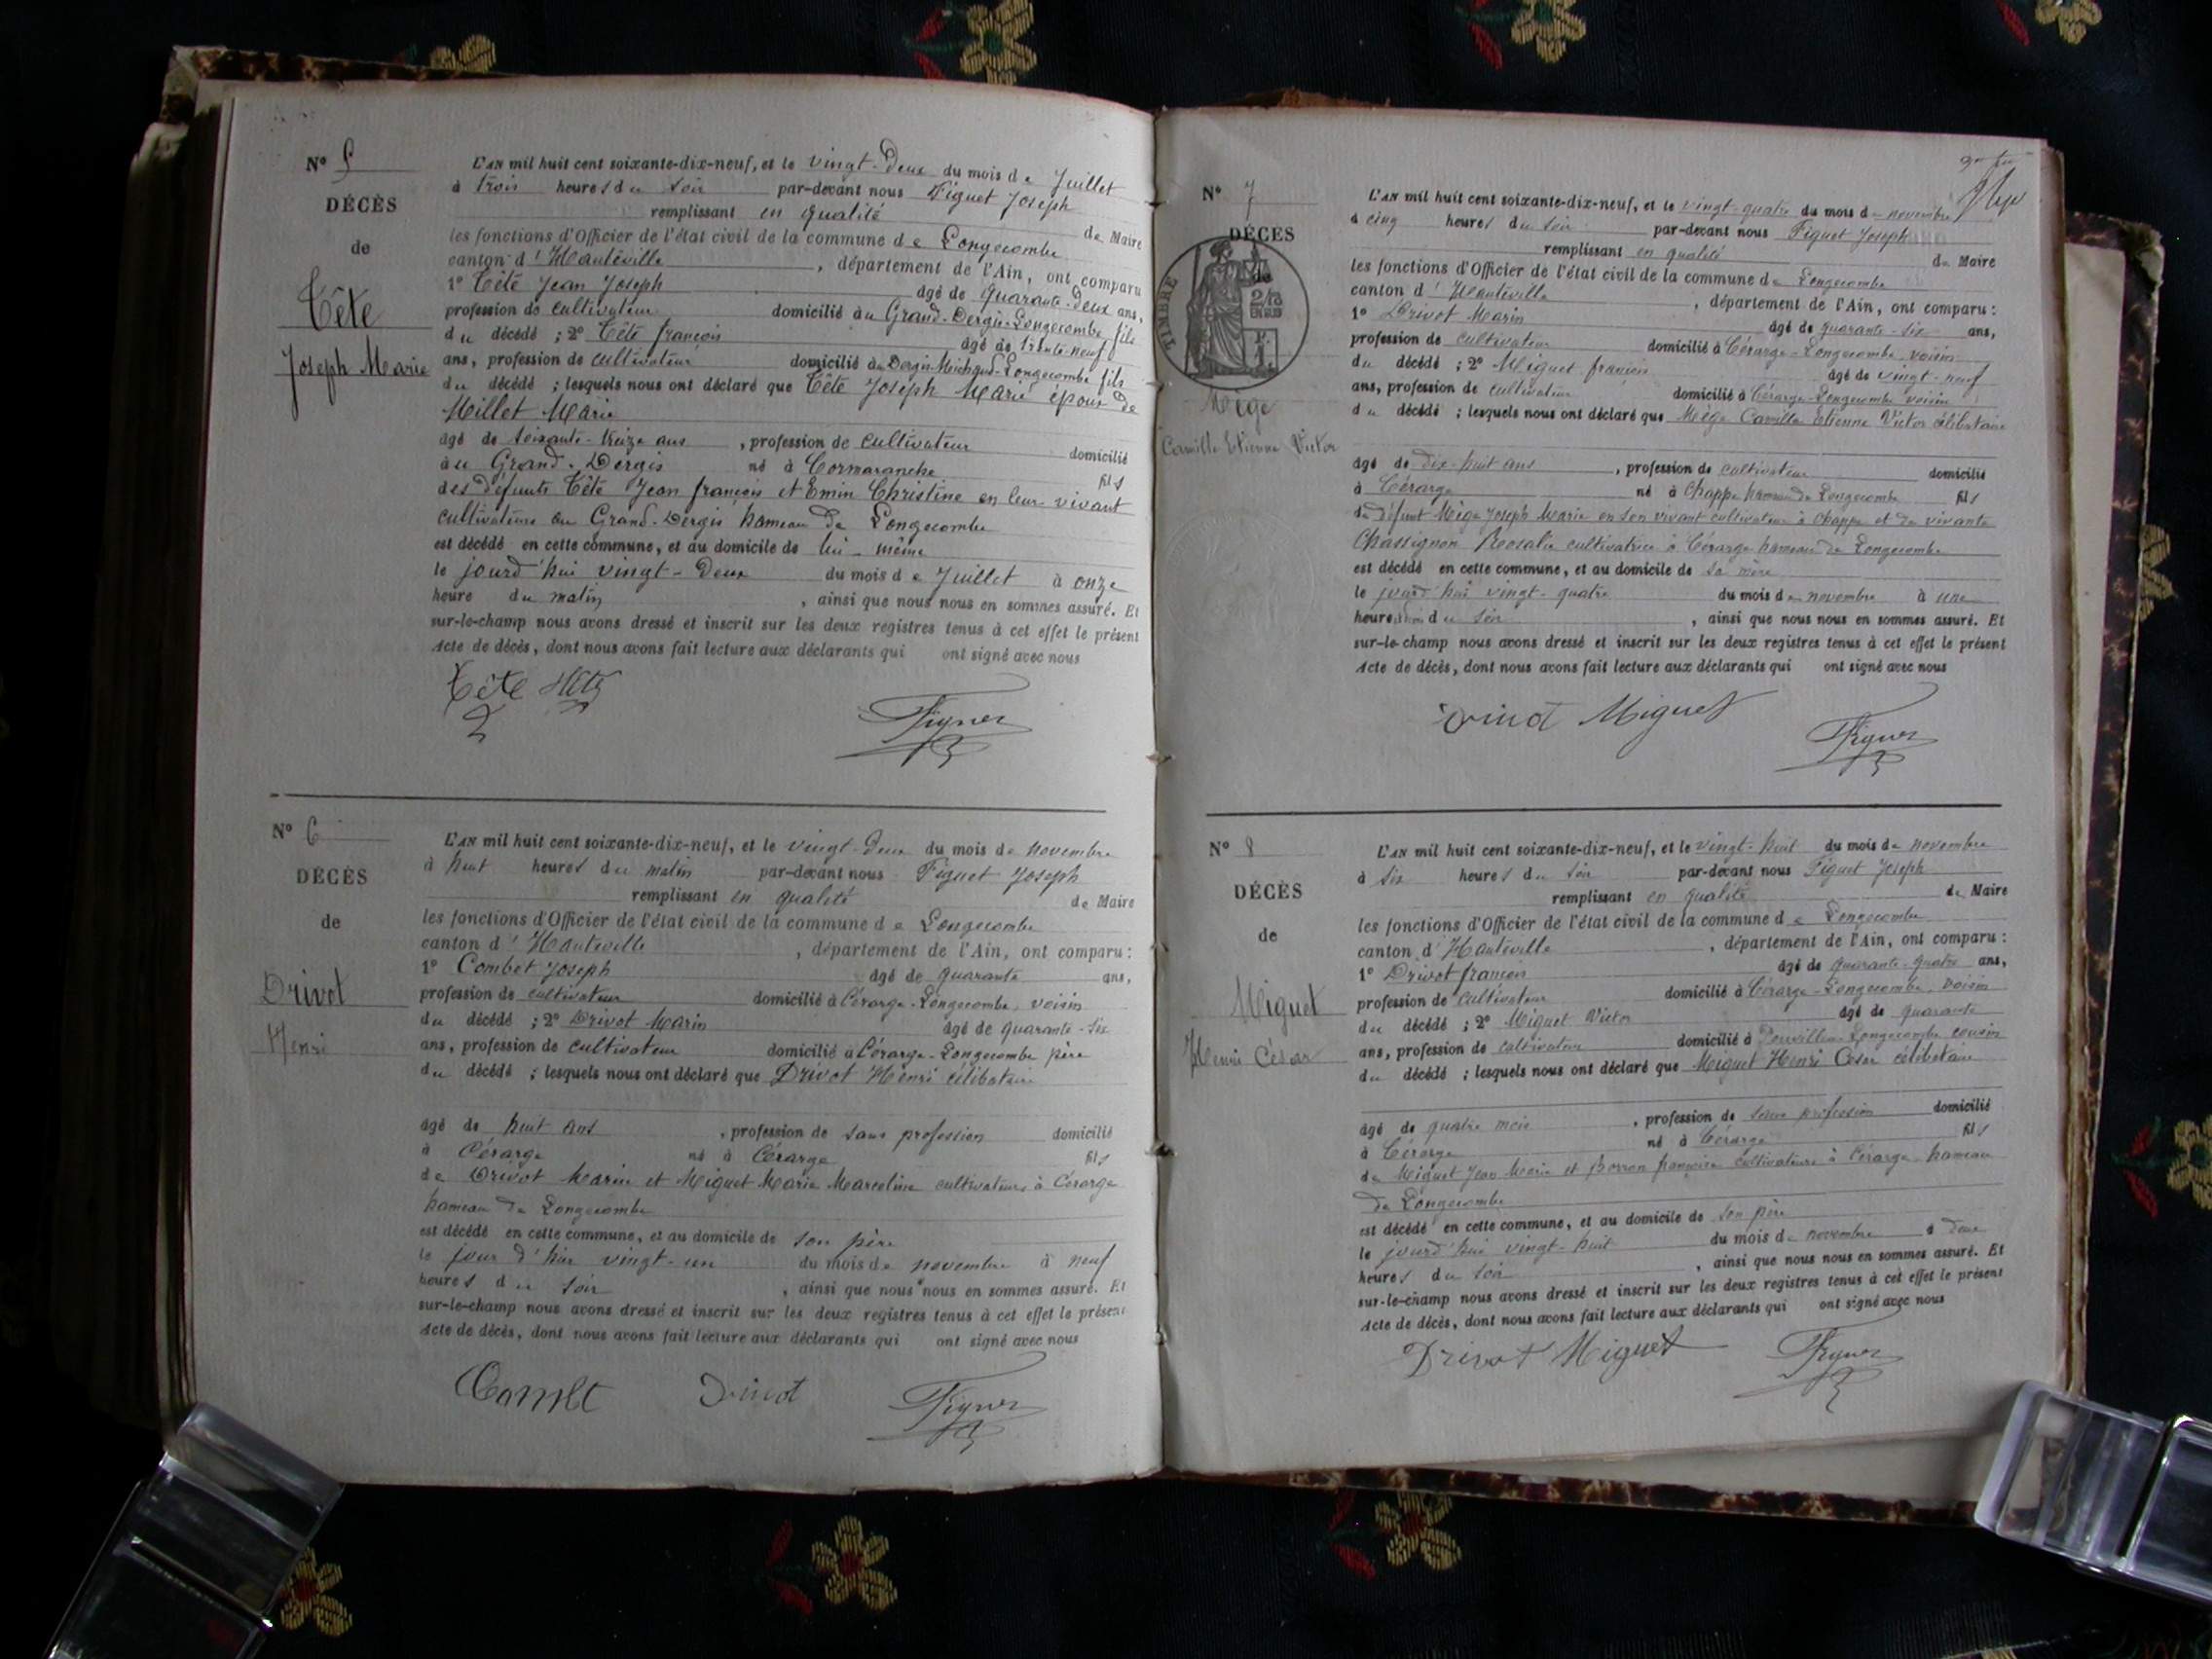 N° 5
DÉCÈS
de
Tête
Joseph Marie
L'AN mil huit cent soixante-dix-neuf, et le vingt-deux du mois de Juillet
à trois heures du soir par-devant nous Figuet Joseph
remplissant en qualité de Maire
les fonctions d'Officier de l'état civil de la commune de Longecombe
canton d'Hauteville, département de l'Ain, ont comparu
1° Tête Jean Joseph âgé de quarante-deux ans,
profession de cultivateur domicilié au Grand-Dergis-Longecombe fils
du décédé ; 2° Tête françois âgé de trente-neuf
ans, profession de cultivateur domicilié au Dergis-Michaud-Longecombe fils
du décédé ; lesquels nous ont déclaré que Tête Joseph Marie époux de
Millet Marie
âgé de soixante-treize ans, profession de cultivateur domicilié
au Grand-Dergis né à Cormaranche fils
des défunts Tête Jean françois et Emin Christine en leur vivant
cultivateurs au Grand-Dergis hameau de Longecombe
est décédé en cette commune, et au domicile de lui-même
le jourd'hui vingt-deux du mois de Juillet à onze
heure du matin, ainsi que nous nous en sommes assuré. Et
sur-le-champ nous avons dressé et inscrit sur les deux registres tenus à cet effet le présent
Acte de décès, dont nous avons fait lecture aux déclarants qui ont signé avec nous
Tête Tête Figuet
N° 6
DÉCÈS
de
Drivet
Henri
L'AN mil huit cent soixante-dix-neuf, et le vingt-deux du mois de novembre
à huit heures du matin par-devant nous Figuet Joseph
remplissant en qualité de Maire
les fonctions d'Officier de l'état civil de la commune de Longecombe
canton d'Hauteville, département de l'Ain, ont comparu :
1° Combet Joseph âgé de quarante ans,
profession de cultivateur domicilié à Cérarge-Longecombe, voisin
du décédé ; 2° Drivot Marin âgé de quarante-six
ans, profession de cultivateur domicilié à Cérarge-Longecombe père
du décédé ; lesquels nous ont déclaré que Drivot Henri célibataire
âgé de huit ans, profession de sans profession domicilié
à Cérarge né à Cérarge fils
de Drivot Marin et Miguet Marie Marceline cultivateurs à Cérarge
hameau de Longecombe
est décédé en cette commune, et au domicile de son père
le jour d'hier vingt-un du mois de novembre à neuf
heures du soir, ainsi que nous nous en sommes assuré. Et
sur-le-champ nous avons dressé et inscrit sur les deux registres tenus à cet effet le présent
Acte de décès, dont nous avons fait lecture aux déclarants qui ont signé avec nous
Combet Drivot Figuet
N° 7
DÉCÈS
de
TIMBRE
Mége
Camille Etienne Victor
L'AN mil huit cent soixante-dix-neuf, et le vingt-quatre du mois de novembre
à cinq heures du soir par-devant nous Figuet Joseph
remplissant en qualité de Maire
les fonctions d'Officier de l'état civil de la commune de Longecombe
canton d'Hauteville, département de l'Ain, ont comparu :
1° Drivot Marin âgé de quarante-six ans,
profession de cultivateur domicilié à Cérarge-Longecombe voisin
du décédé ; 2° Miguet françois âgé de vingt-neuf
ans, profession de cultivateur domicilié à Cérarge-Longecombe voisin
du décédé ; lesquels nous ont déclaré que Mége Camille Etienne Victor célibataire
âgé de dix-huit ans, profession de cultivateur domicilié
à Cérarge né à Chappe hameau de Longecombe fils
de défunt Mége Joseph Marie en son vivant cultivateur à Chappe et de vivante
Chassignon Rosalie cultivatrice à Cérarge hameau de Longecombe
est décédé en cette commune, et au domicile de sa mère
le jourd'hui vingt-quatre du mois de novembre à une
heure du soir, ainsi que nous nous en sommes assuré. Et
sur-le-champ nous avons dressé et inscrit sur les deux registres tenus à cet effet le présent
Acte de décès, dont nous avons fait lecture aux déclarants qui ont signé avec nous
Drivot Miguet Figuet
N° 8
DÉCÈS
de
Miguet
Henri César
L'AN mil huit cent soixante-dix-neuf, et le vingt-huit du mois de novembre
à six heures du soir par-devant nous Figuet Joseph
remplissant en qualité de Maire
les fonctions d'Officier de l'état civil de la commune de Longecombe
canton d'Hauteville, département de l'Ain, ont comparu :
1° Drivot françois âgé de quarante-quatre ans,
profession de cultivateur domicilié à Cérarge-Longecombe, voisin
du décédé ; 2° Miguet Victor âgé de quarante
ans, profession de cultivateur domicilié à Longecombe cousin
du décédé ; lesquels nous ont déclaré que Miguet Henri César célibataire
âgé de quatre mois, profession de sans profession domicilié
à Cérarge né à Cérarge fils
de Miguet Jean Marie et Borron françoise cultivateurs à Cérarge hameau
de Longecombe
est décédé en cette commune, et au domicile de son père
le jourd'hui vingt-huit du mois de novembre à deux
heures du soir, ainsi que nous nous en sommes assuré. Et
sur-le-champ nous avons dressé et inscrit sur les deux registres tenus à cet effet le présent
Acte de décès, dont nous avons fait lecture aux déclarants qui ont signé avec nous
Drivot Miguet Figuet